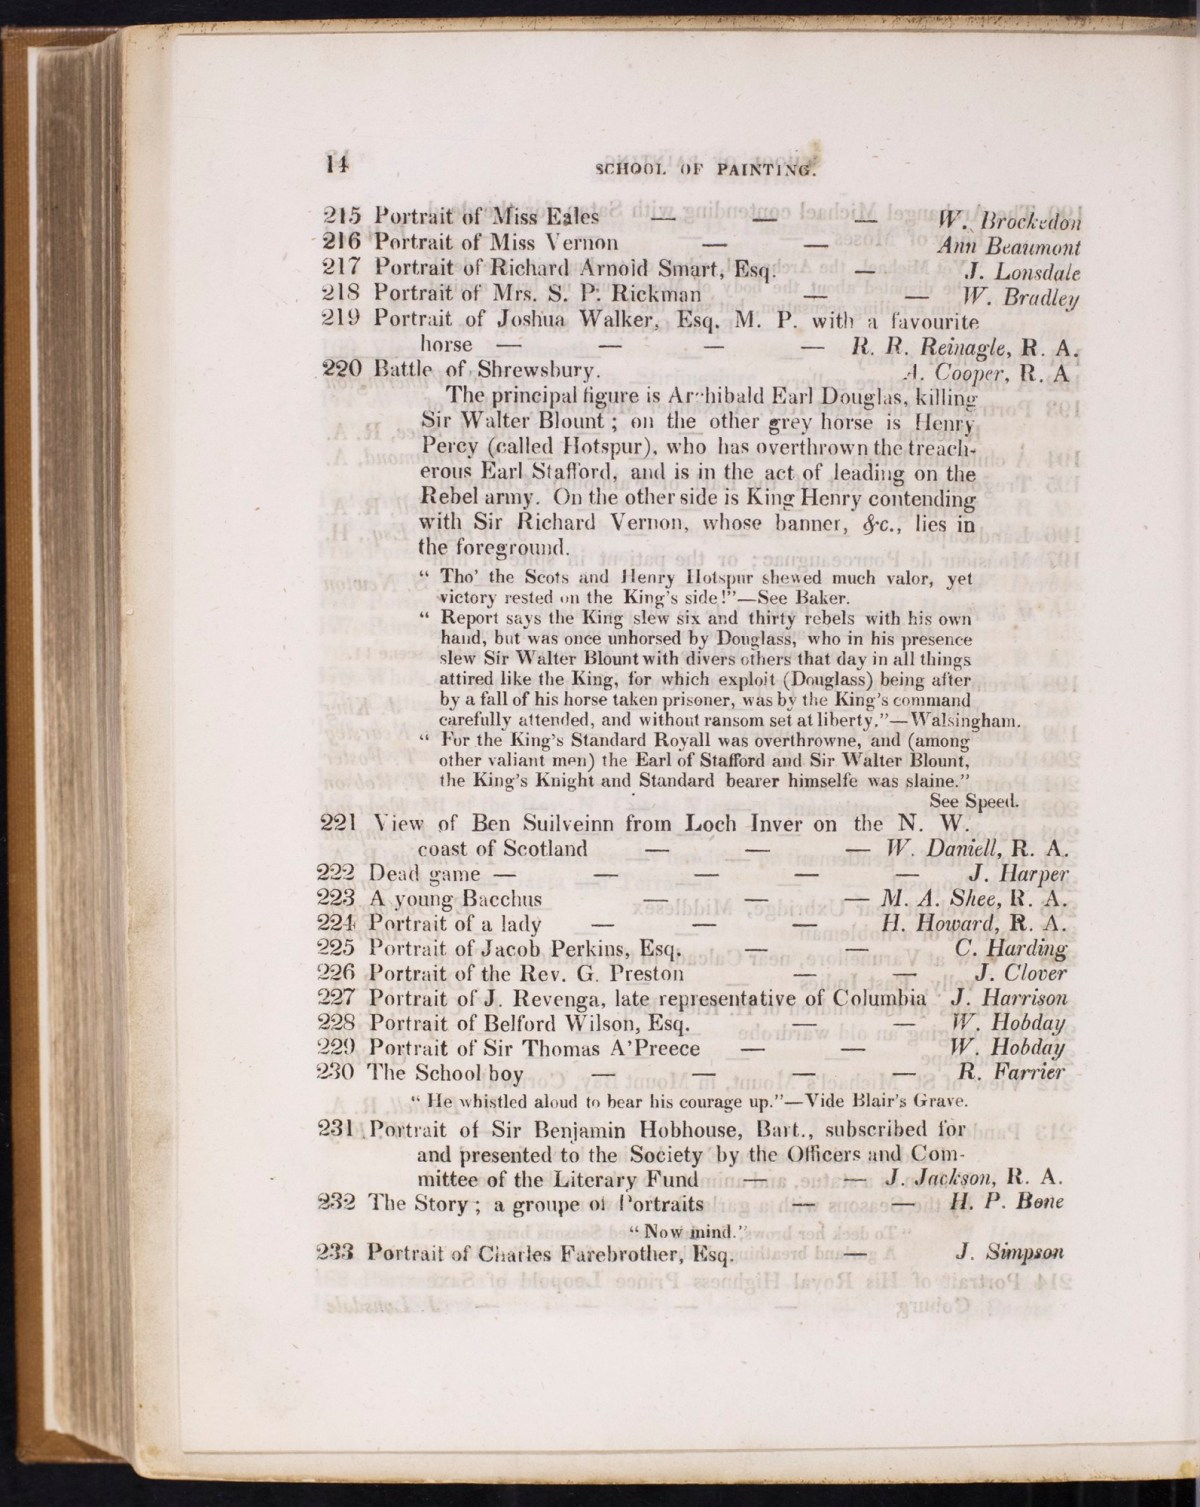 14 SCHOOL OF PAINTING.
215 Portrait of Miss Eales — — — W. Brockedon
216 Portrait of Miss Vernon — — Ann Beaumont
217 Portrait of Richard Arnold Smart, Esq. — J. Lonsdale
218 Portrait of Mrs. S. P. Rickman — — W. Bradley
219 Portrait of Joshua Walker, Esq. M. P. with a favourite
horse — — — — R. R. Reinagle, R. A.
220 Battle of Shrewsbury. A. Cooper, R. A
The principal figure is Archibald Earl Douglas, killing
Sir Walter Blount; on the other grey horse is Henry
Percy (called Hotspur), who has overthrown the treach-
erous Earl Stafford, and is in the act of leading on the
Rebel army. On the other side is King Henry contending
with Sir Richard Vernon, whose banner, &c., lies in
the foreground.
“ Tho’ the Scots and Henry Hotspur shewed much valor, yet
victory rested on the King’s side!”—See Baker.
“ Report says the King slew six and thirty rebels with his own
hand, but was once unhorsed by Douglass, who in his presence
slew Sir Walter Blount with divers others that day in all things
attired like the King, for which exploit (Douglass) being after
by a fall of his horse taken prisoner, was by the King’s command
carefully attended, and without ransom set at liberty.”—Walsingham.
“ For the King’s Standard Royall was overthrowne, and (among
other valiant men) the Earl of Stafford and Sir Walter Blount,
the King’s Knight and Standard bearer himselfe was slaine.”
See Speed.
221 View of Ben Suilveinn from Loch Inver on the N. W.
coast of Scotland — — — W. Daniell, R. A.
222 Dead game — — — — — J. Harper
223 A young Bacchus — — — M. A. Shee, R. A.
224 Portrait of a lady — — — H. Howard, R. A.
225 Portrait of Jacob Perkins, Esq. — — C. Harding
226 Portrait of the Rev. G. Preston — — J. Clover
227 Portrait of J. Revenga, late representative of Columbia J. Harrison
228 Portrait of Belford Wilson, Esq. — — W. Hobday
229 Portrait of Sir Thomas A’Preece — — W. Hobday
230 The School boy — — — — R. Farrier
“ He whistled aloud to bear his courage up.”—Vide Blair’s Grave.
231 Portrait of Sir Benjamin Hobhouse, Bart., subscribed for
and presented to the Society by the Officers and Com-
mittee of the Literary Fund — — J. Jackson, R. A.
232 The Story; a groupe of Portraits — — H. P. Bone
“ Now mind.”
233 Portrait of Charles Farebrother, Esq. — J. Simpson